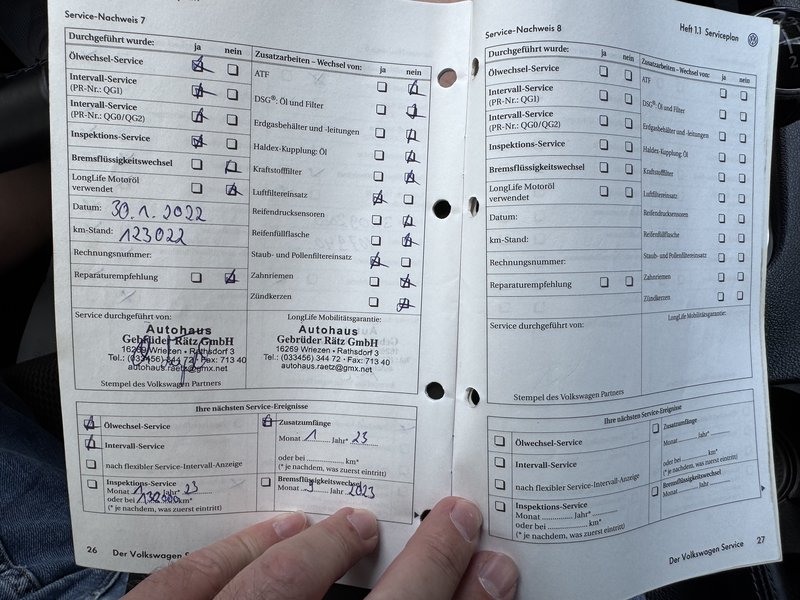 Service-Nachweis 7
Durchgeführt wurde: ja nein
Ölwechsel-Service
Intervall-Service
(PR-Nr.: QG1)
Intervall-Service
(PR-Nr.: QG0/QG2)
Inspektions-Service
Bremsflüssigkeitswechsel
LongLife Motoröl
verwendet
Datum: 30.1.2022
km-Stand: 123022
Rechnungsnummer:
Reparaturempfehlung
Zusatzarbeiten – Wechsel von: ja nein
ATF
DSG®: Öl und Filter
Erdgasbehälter und -leitungen
Haldex-Kupplung: Öl
Kraftstofffilter
Luftfiltereinsatz
Reifendrucksensoren
Reifenfüllflasche
Staub- und Pollenfiltereinsatz
Zahnriemen
Zündkerzen
Service durchgeführt von:
Autohaus
Gebrüder Rätz GmbH
16269 Wriezen • Rathsdorf 3
Tel.: (033456) 344 72 • Fax: 713 40
autohaus.raetz@gmx.net
Stempel des Volkswagen Partners
LongLife Mobilitätsgarantie:
Autohaus
Gebrüder Rätz GmbH
16269 Wriezen • Rathsdorf 3
Tel.: (033456) 344 72 • Fax: 713 40
autohaus.raetz@gmx.net
Ihre nächsten Service-Ereignisse
Ölwechsel-Service
Intervall-Service
nach flexibler Service-Intervall-Anzeige
Inspektions-Service
Monat 1 Jahr* 23
oder bei 132000 km*
(* je nachdem, was zuerst eintritt)
Zusatzumfänge
Monat 1 Jahr* 23
oder bei .................... km*
(* je nachdem, was zuerst eintritt)
Bremsflüssigkeitswechsel
Monat 9 Jahr 2023
26 Der Volkswagen
Heft 1.1 Serviceplan
Service-Nachweis 8
Durchgeführt wurde: ja nein
Ölwechsel-Service
Intervall-Service
(PR-Nr.: QG1)
Intervall-Service
(PR-Nr.: QG0/QG2)
Inspektions-Service
Bremsflüssigkeitswechsel
LongLife Motoröl
verwendet
Datum:
km-Stand:
Rechnungsnummer:
Reparaturempfehlung
Zusatzarbeiten – Wechsel von: ja nein
ATF
DSG®: Öl und Filter
Erdgasbehälter und -leitungen
Haldex-Kupplung: Öl
Kraftstofffilter
Luftfiltereinsatz
Reifendrucksensoren
Reifenfüllflasche
Staub- und Pollenfiltereinsatz
Zahnriemen
Zündkerzen
Service durchgeführt von:
LongLife Mobilitätsgarantie:
Stempel des Volkswagen Partners
Ihre nächsten Service-Ereignisse
Ölwechsel-Service
Intervall-Service
nach flexibler Service-Intervall-Anzeige
Inspektions-Service
Monat ............... Jahr* ...............
oder bei .................... km*
(* je nachdem, was zuerst eintritt)
Zusatzumfänge
Monat ............... Jahr* ...............
oder bei .................... km*
(* je nachdem, was zuerst eintritt)
Bremsflüssigkeitswechsel
Monat ............... Jahr ...............
Der Volkswagen Service 27